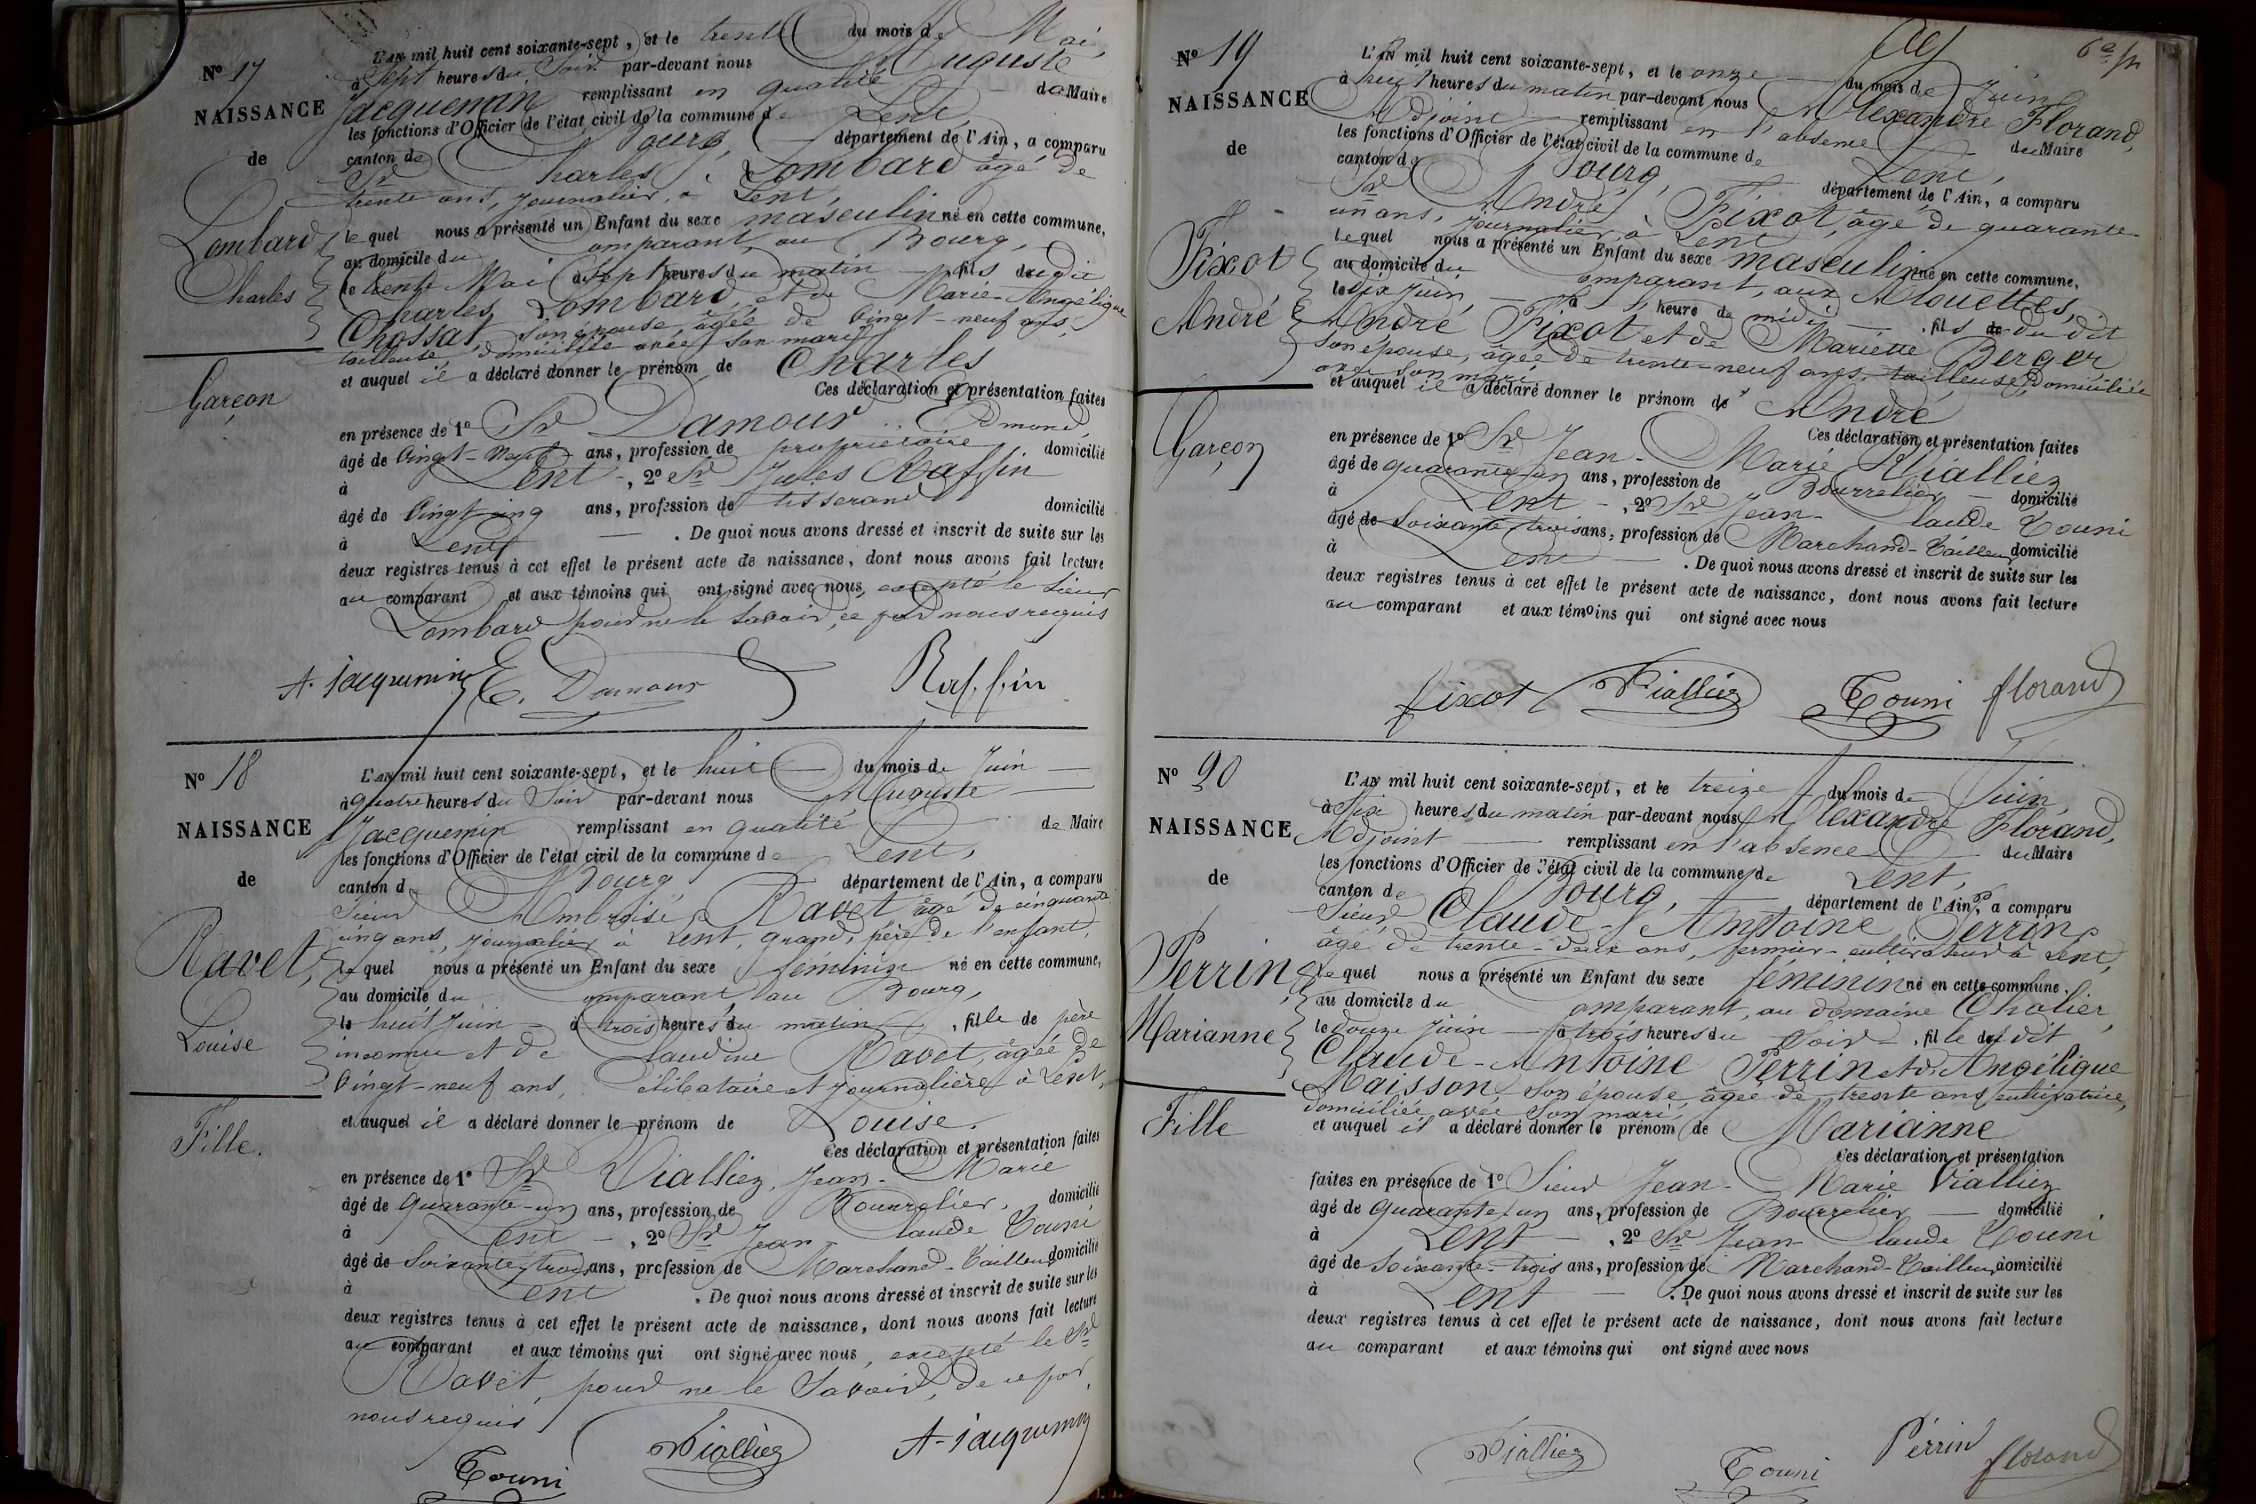 Nº 17
NAISSANCE
de
Lombard
Charles
Garçon
L'AN mil huit cent soixante-sept, et le trente du mois de Mai,
à Sept heures du Soir par-devant nous Auguste
Jacquemin remplissant en qualité de Maire
les fonctions d'Officier de l'état civil de la commune de Lent,
canton de Bourg, département de l'Ain, a comparu
Sr Charles Lombard âgé de
trente ans, journalier, à Lent,
lequel nous a présenté un Enfant du sexe masculin né en cette commune,
au domicile du comparant, au Bourg,
le trente Mai à Sept heures du matin fils dudit
Charles Lombard, et de Marie-Angélique
Chossat, son épouse, âgée de vingt-neuf ans,
tailleuse, domiciliée avec son mari
et auquel il a déclaré donner le prénom de Charles
Ces déclaration et présentation faites
en présence de 1º Sr Damour Edmond,
âgé de vingt-sept ans, profession de propriétaire domicilié
à Lent, 2º Sr Jules Raffin
âgé de vingt cinq ans, profession de tisserand domicilié
à Lent. De quoi nous avons dressé et inscrit de suite sur les
deux registres tenus à cet effet le présent acte de naissance, dont nous avons fait lecture
au comparant et aux témoins qui ont signé avec nous, excepté le Sieur
Lombard pour ne le savoir, ce par nous requis
A. Jacquemin E. Damour Raffin
Nº 18
NAISSANCE
de
Ravet,
Louise
Fille.
L'AN mil huit cent soixante-sept, et le huit du mois de Juin
à quatre heures du Soir par-devant nous Auguste
Jacquemin remplissant en qualité de Maire
les fonctions d'Officier de l'état civil de la commune de Lent,
canton de Bourg département de l'Ain, a comparu
Sieur Ambroise Ravet âgé de cinquante
cinq ans, journalier à Lent, grand-père de l'enfant,
lequel nous a présenté un Enfant du sexe féminin né en cette commune,
au domicile du comparant, au Bourg,
le huit Juin à trois heures du matin, fille de père
inconnu et de Claudine Ravet, âgée de
vingt-neuf ans, célibataire et journalière à Lent,
et auquel il a déclaré donner le prénom de Louise.
Ces déclaration et présentation faites
en présence de 1º Sr Vialliez, Jean-Marie
âgé de quarante-un ans, profession de Bourrelier, domicilié
à Lent, 2º Sr Jean Claude Touni
âgé de soixante-trois ans, profession de Marchand-Tailleur domicilié
à Lent. De quoi nous avons dressé et inscrit de suite sur les
deux registres tenus à cet effet le présent acte de naissance, dont nous avons fait lecture
au comparant et aux témoins qui ont signé avec nous, excepté le Sr
Ravet, pour ne le savoir, de ce par
nous requis
Touni Vialliez A. Jacquemin
Nº 19
NAISSANCE
de
Fixot
André
Garçon
L'AN mil huit cent soixante-sept, et le onze du mois de Juin
à huit heures du matin par-devant nous Alexandre Florand,
Adjoint remplissant en l'absence du Maire
les fonctions d'Officier de l'état civil de la commune de Lent,
canton de Bourg, département de l'Ain, a comparu
Sr André Fixot, âgé de quarante-
un ans, journalier, à Lent
lequel nous a présenté un Enfant du sexe masculin né en cette commune,
au domicile du comparant, aux Alouettes,
le dix Juin, à heure de midi, fils du dit
André Fixot et de Mariette Berger
son épouse, âgée de trente-neuf ans, tailleuse, domiciliée
avec son mari
et auquel il a déclaré donner le prénom de André
Ces déclaration et présentation faites
en présence de 1º Sr Jean-Marie Vialliez
âgé de quarante un ans, profession de Bourrelier domicilié
à Lent, 2º Sr Jean-Claude Touni
âgé de soixante trois ans, profession de Marchand-Tailleur domicilié
à Lent. De quoi nous avons dressé et inscrit de suite sur les
deux registres tenus à cet effet le présent acte de naissance, dont nous avons fait lecture
au comparant et aux témoins qui ont signé avec nous
fixot Vialliez Touni florand
Nº 20
NAISSANCE
de
Perrin
Marianne
Fille
L'AN mil huit cent soixante-sept, et le treize du mois de Juin,
à Six heures du matin par-devant nous Alexandre Florand,
Adjoint remplissant en l'absence du Maire
les fonctions d'Officier de l'état civil de la commune de Lent,
canton de Bourg, département de l'Ain, a comparu
Sieur Claude-Antoine Perrin,
âgé de trente-deux ans, fermier-cultivateur à Lent,
lequel nous a présenté un Enfant du sexe féminin né en cette commune.
au domicile du comparant, au domaine Cholier,
le douze Juin à trois heures du Soir, fille du dit
Claude-Antoine Perrin et d'Angélique
Maisson, son épouse âgée de trente ans cultivatrice,
domiciliée avec son mari,
et auquel il a déclaré donner le prénom de Marianne
Ces déclaration et présentation
faites en présence de 1º Sieur Jean-Marie Vialliez
âgé de quarante-un ans, profession de Bourrelier domicilié
à Lent, 2º Sr Jean-Claude Touni
âgé de soixante-trois ans, profession de Marchand-Tailleur domicilié
à Lent. De quoi nous avons dressé et inscrit de suite sur les
deux registres tenus à cet effet le présent acte de naissance, dont nous avons fait lecture
au comparant et aux témoins qui ont signé avec nous
Vialliez Touni Perrin florand